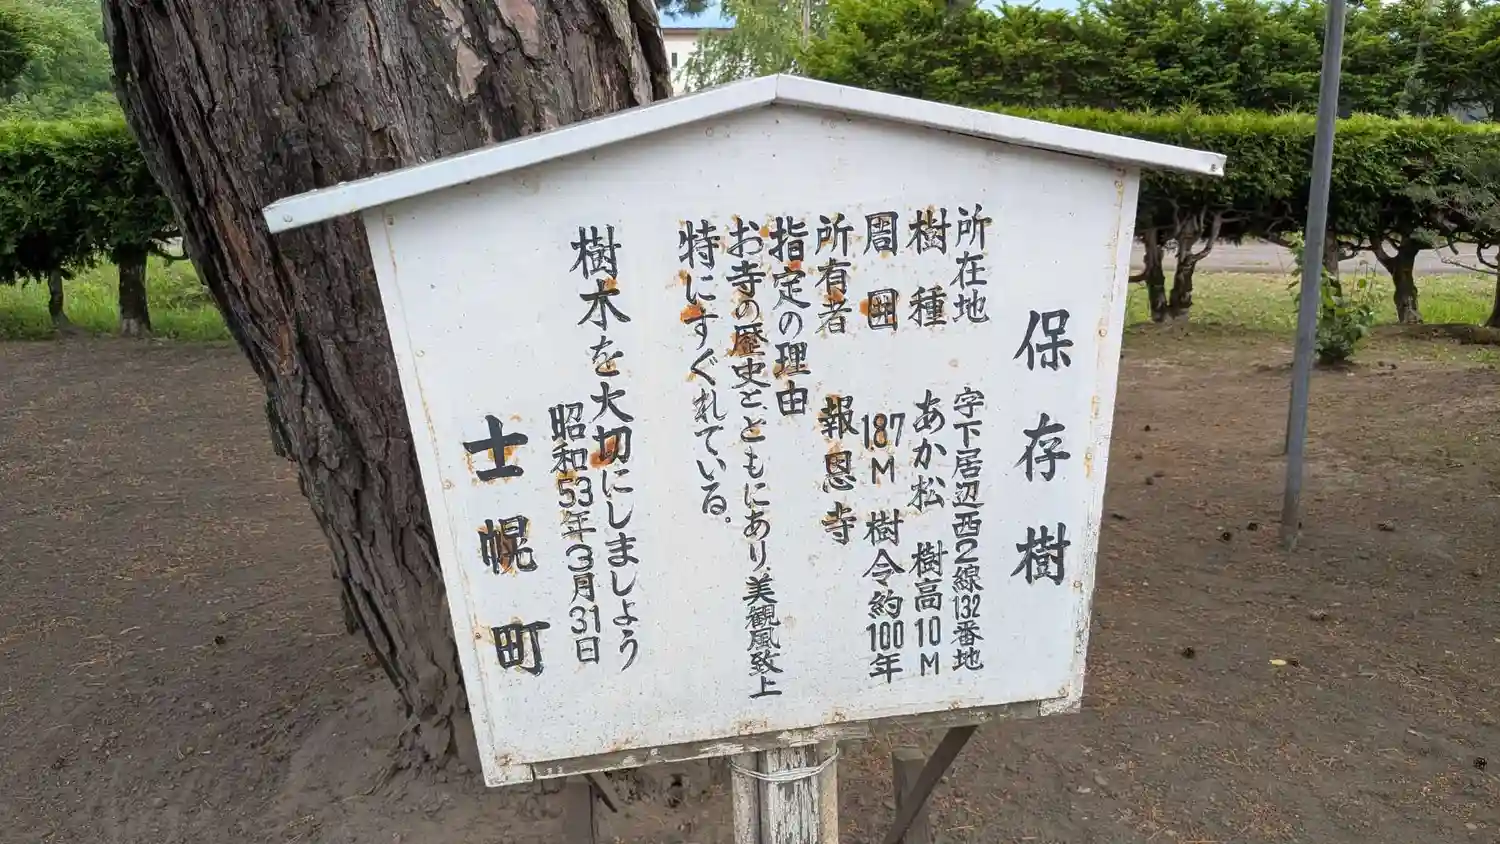 保存樹
所在地 字下居辺西2線132番地
樹種 あか松 樹高10M
周囲 187M 樹令約100年
所有者 報恩寺
指定の理由
お寺の歴史と、ともにあり、美観風致上
特にすぐれている。
樹木を大切にしましょう
昭和53年3月31日
士幌町